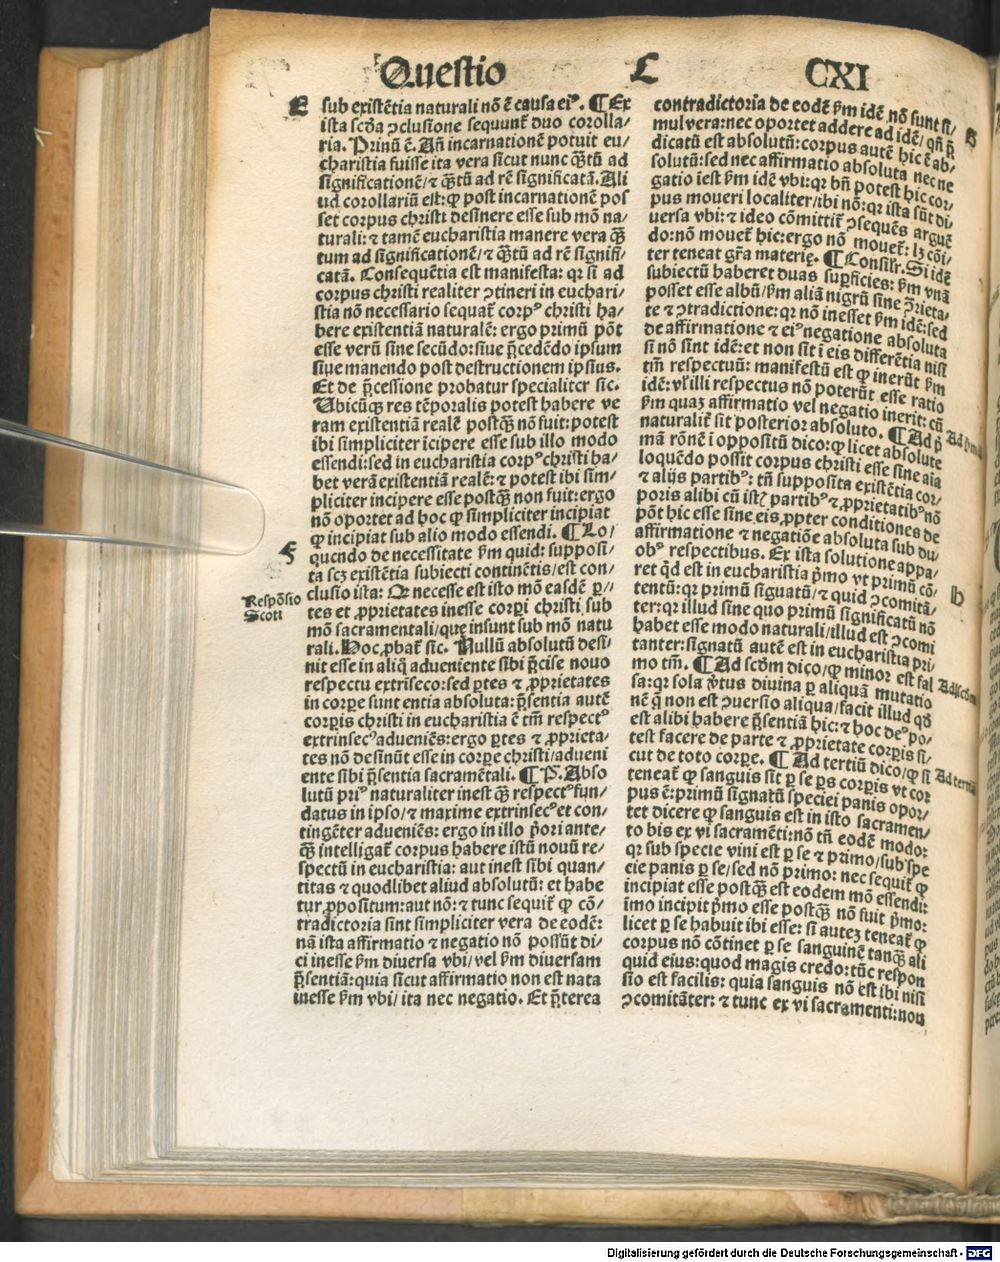 Questio L CXI
E
sub existētia naturali nō ē causa eiꝰ. ¶ Ex
ista scd̄a ↄclusione sequunt̄ duo corolla/
ria. Prinū ē. Añ incarnationē potuit eu/
charistia fuisse ita vera sicut nunc qͣ̄tū ad
significationē/⁊ qͣ̄tū ad rē significatā. Ali
ud corollariū est: ꝙ post incarnationē pos
set corpus christi desinere esse sub mō na/
turali: ⁊ tamē eucharistia manere vera qͣ̄
tum ad significationē/⁊ qͣ̄tū ad rē signifi/
catā. Consequētia est manifesta: qꝛ si ad
corpus christi realiter ↄtineri in euchari/
stia nō necessario sequat̄ corpꝰ christi ha/
bere existentiā naturalē: ergo primū pōt
esse verū sine secūdo: siue p̄cedēdo ipsum
siue manendo post destructionem ipsius.
Et de p̄cessione probatur specialiter sic.
Ubicūqꝫ res tēporalis potest habere ve
ram existentiā realē postqͣ̄ nō fuit: potest
ibi simpliciter īcipere esse sub illo modo
essendi: sed in eucharistia corpꝰ christi ha/
bet verā existentiā realē: ⁊ potest ibi sim/
pliciter incipere esse postqͣ̄ non fuit: ergo
nō oportet ad hoc ꝙ simpliciter incipiat
ꝙ incipiat sub alio modo essendi. ¶ Lo/
F
quendo de necessitate ẜm quid: supposi/
ta scꝫ existētia subiecti continētis/est con/
clusio ista: Ꝙ necesse est isto mō easdē ꝑ//
Respōsio
Scoti
tes et ꝓprietates inesse corꝑi christi sub
mō sacramentali/que insunt sub mō natu
rali. Hoc ꝓbat̄ sic. Nullū absolutū desi/
nit esse in aliq̄ adueniente sibi p̄cise nouo
respectu extriseco: sed ꝑtes ⁊ ꝓprietates
in corꝑe sunt entia absoluta: p̄sentia autē
corꝑis christi in eucharistia ē tm̄ respectꝰ
extrinsecꝰ adueniēs: ergo ꝑtes ⁊ ꝓprieta/
tes nō desinūt esse in corꝑe christi/adueni
ente sibi p̄sentia sacramētali. ¶ P. Abso
lutū priꝰ naturaliter inest qͣ̄ respectꝰ fun/
datus in ipso/⁊ maxime extrinsecꝰ et con/
tingēter adueniēs: ergo in illo p̄ori ante/
qͣ̄ intelligat̄ corpus habere istū nouū re/
spectū in eucharistia: aut inest sibi quan/
titas ⁊ quodlibet aliud absolutū: et habe
tur ꝓpositum: aut nō: ⁊ tunc sequit̄ ꝙ cō/
tradictoria sint simpliciter vera de eodē:
nā ista affirmatio ⁊ negatio nō possūt di/
ci inesse ẜm diuersa vbi/vel ẜm diuersam
p̄sentiā: quia sicut affirmatio non est nata
inesse ẜm vbi/ita nec negatio. Et p̄terea
contradictoria de eodē ẜm idē nō sunt si/
mul vera: nec oportet addere ad idē/qñ p̄
G
dicatū est absolutū: corpus autē hic ē ab/
solutū: sed nec affirmatio absoluta nec ne
gatio īest ẜm idē vbi: qꝛ bn̄ potest hic cor/
pus moueri localiter/ibi nō: qꝛ ista sūt di/
uersa vbi: ⁊ ideo cōmittit̄ ↄsequēs arguē
do: nō mouet̄ hic: ergo nō mouet̄: lꝫ cōi/
ter teneat gr̄a materię. ¶ Consilr̄. Si idē
subiectū haberet duas suꝑficies: ẜm vnā
posset esse albū/ẜm aliā nigrū sine ↄrieta/
te ⁊ ↄtradictione: qꝛ nō inesset ẜm idē: sed
de affirmatione ⁊ eiꝰ negatione absoluta
si nō sint idē: et non sit ī eis differētia nisi
tm̄ respectuū: manifestū est ꝙ inerūt ẜm
idē: vl̓ illi respectus nō poterūt esse ratio
ẜm quaꝫ affirmatio vel negatio inerit: cū
naturalit̄ sit posterior absoluto. ¶ Ad p̄
Ad p̄mā
mā rōnē ī oppositū dico: ꝙ licet absolute
loquēdo possit corpus christi esse sine aīa
⁊ alijs partibꝰ: tn̄ supposita existētia cor/
poris alibi cū istꝭ partibꝰ ⁊ ꝓprietatibꝰ nō
pōt hic esse sine eis ꝓpter conditiones de
affirmatione ⁊ negatiōe absoluta sub du/
obꝰ respectibus. Ex ista solutione appa/
ret qd̄ est in eucharistia p̄mo vt primū cō/
H
tentū: qꝛ primū siguatū/⁊ quid ↄcomitā/
ter: qꝛ illud sine quo primū significatū nō
habet esse modo naturali/illud est ↄcomi
tanter: signatū autē est in eucharistia pri/
mo tm̄. ¶ Ad scōm dico/ꝙ minor est fal
Ad scōm
sa: qꝛ sola v̓tus diuina ꝑ aliquā mutatio
nē q̄ non est ↄuersio aliqua/facit illud qd̄
est alibi habere p̄sentiā hic: ⁊ hoc deꝰ po/
test facere de parte ⁊ ꝓprietate corꝑis si/
cut de toto corꝑe. ¶ Ad tertiū dico/ꝙ si
Ad tertiū
teneat̄ ꝙ sanguis sit ꝑ se ꝑs corꝑis vt cor
pus ē: primū signatū speciei panis opor/
tet dicere ꝙ sanguis est in isto sacramen/
to bis ex vi sacramēti: nō tn̄ eodē modo:
qꝛ sub specie vini est ꝑ se ⁊ primo/sub spe
cie panis ꝑ se/sed nō primo: nec sequit̄ ꝙ
incipiat esse postqͣ̄ est eodem mō essendi:
īmo incipit p̄mo esse postqͣ̄ nō fuit p̄mo:
licet ꝑ se habuit ibi esse: si auteꝫ teneat̄ ꝙ
corpus nō cōtinet ꝑ se sanguinē tanqͣ̄ ali
quid eius: quod magis credo: tūc respon
sio est facilis: quia sanguis nō est ibi nisi
ↄcomitāter: ⁊ tunc ex vi sacramenti: nou
Digitalisierung gefördert durch die Deutsche Forschungsgemeinschaft - DFG